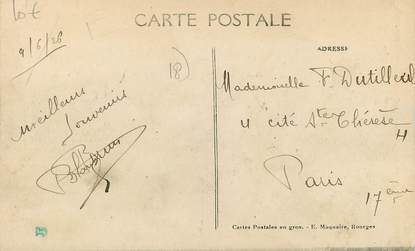 10€
CARTE POSTALE
9/6/28
18)
ADRESSE
Meilleurs
Souvenirs
Mademoiselle F. Dutilleul
4 cité Ste Thérèse
Paris
17ème
Cartes Postales en gros. - E. Maquaire, Bourges